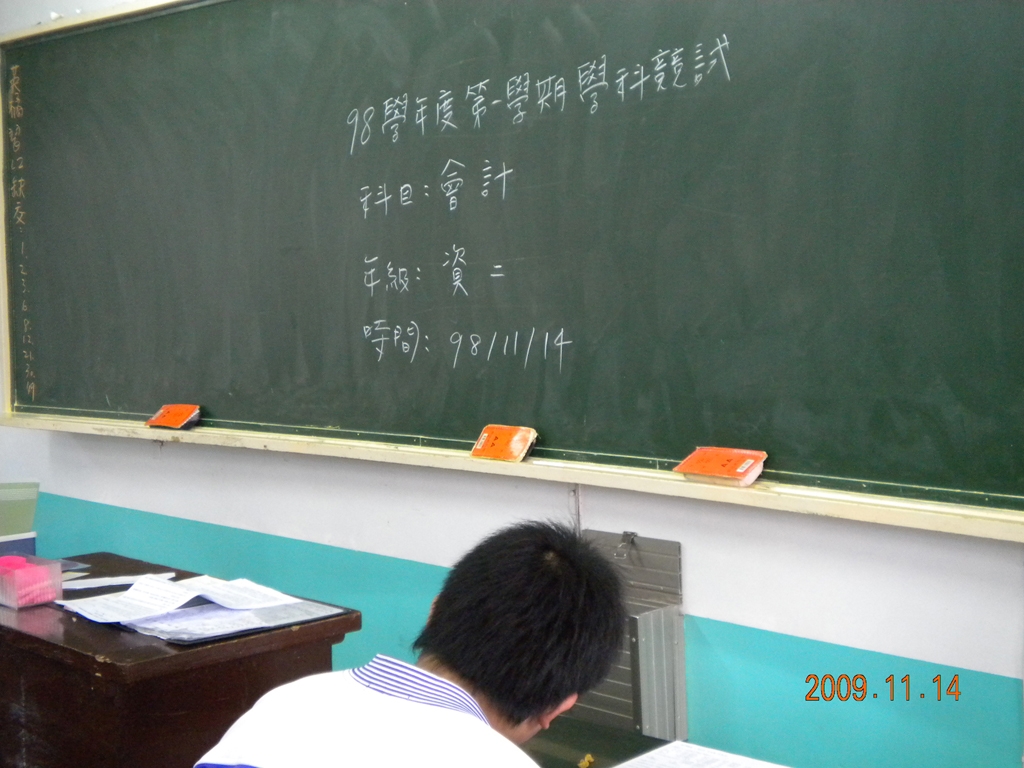 98學年度第一學期學科競試
科目:會計
年級:資二
時間:98/11/14
2009.11.14